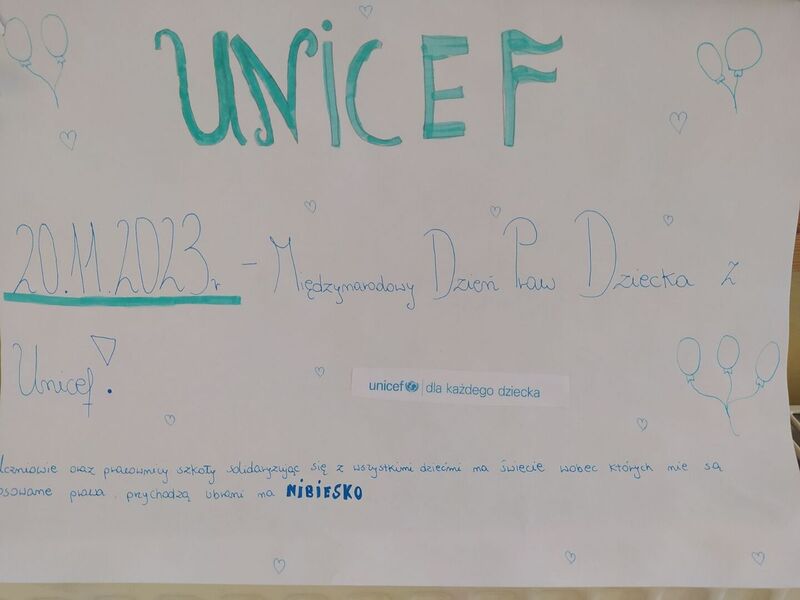 UNICEF
20.11.2023r - Międzynarodowy Dzień Praw Dziecka z
Unicef!
unicef | dla każdego dziecka
uczniowie oraz pracownicy szkoły solidaryzując się z wszystkimi dziećmi na świecie wobec których nie są
osowane prawa, przychodzą ubrani na NIBIESKO